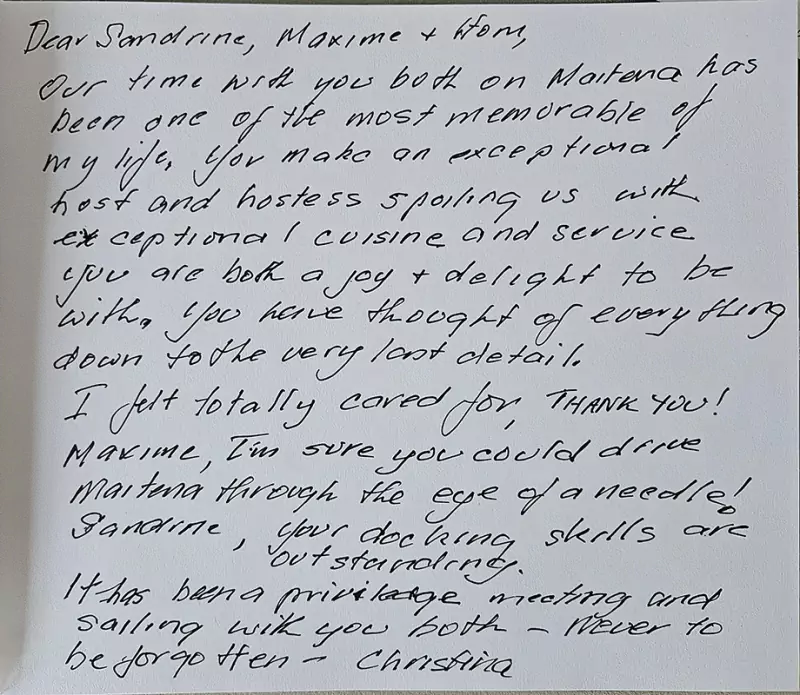 Dear Sandrine, Maxime +
Our time with you both on Maitena has
been one of the most memorable of
my life, You make an exceptional
host and hostess spoiling us with
exceptional cuisine and service
you are both a joy + delight to be
with. You have thought of everything
down to the very last detail.
I felt totally cared for, THANK YOU!
Maxime, I'm sure you could drive
Maitena through the eye of a needle!
Sandrine, your docking skills are
outstanding.
It has been a privilege meeting and
sailing with you both - Never to
be forgotten - Christina